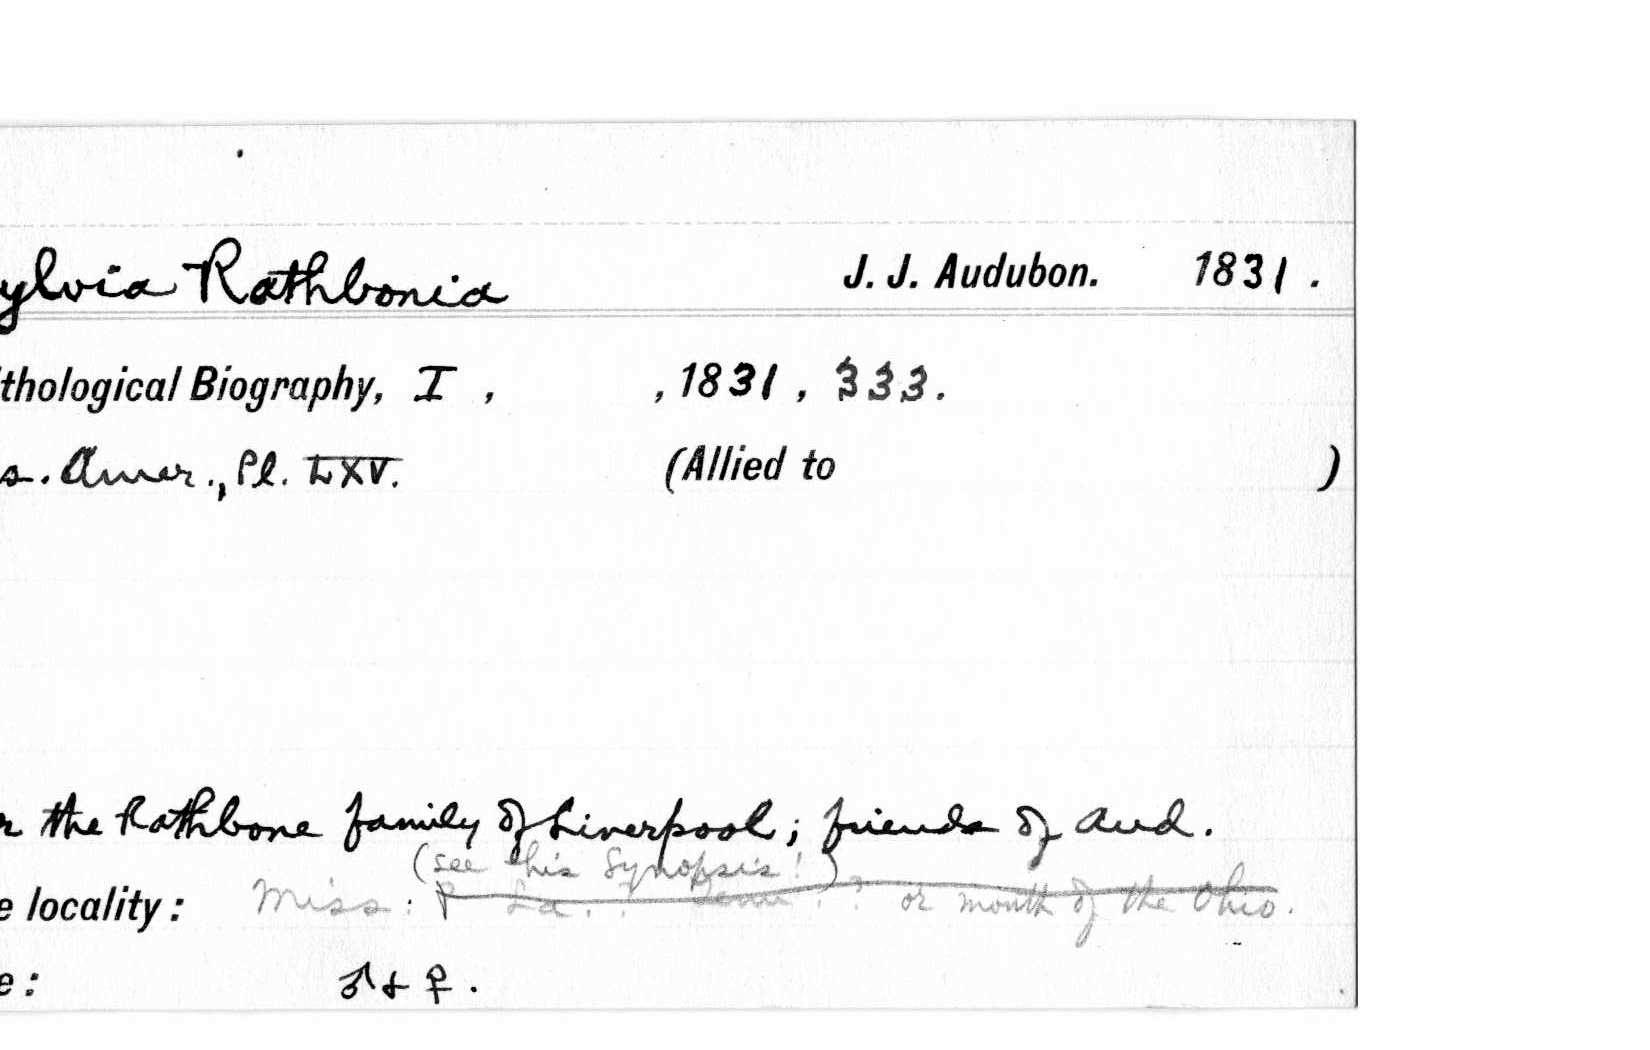 ylvia Rathbonia J. J. Audubon. 1831.
thological Biography, I , , 1831, 333.
s. Amer., Pl. LXV. (Allied to )
r the Rathbone family of Liverpool; friends of Aud.
(see his Synopsis!)
e locality: Miss: La. ? ? or mouth of the Ohio.
e: ♂ & ♀.